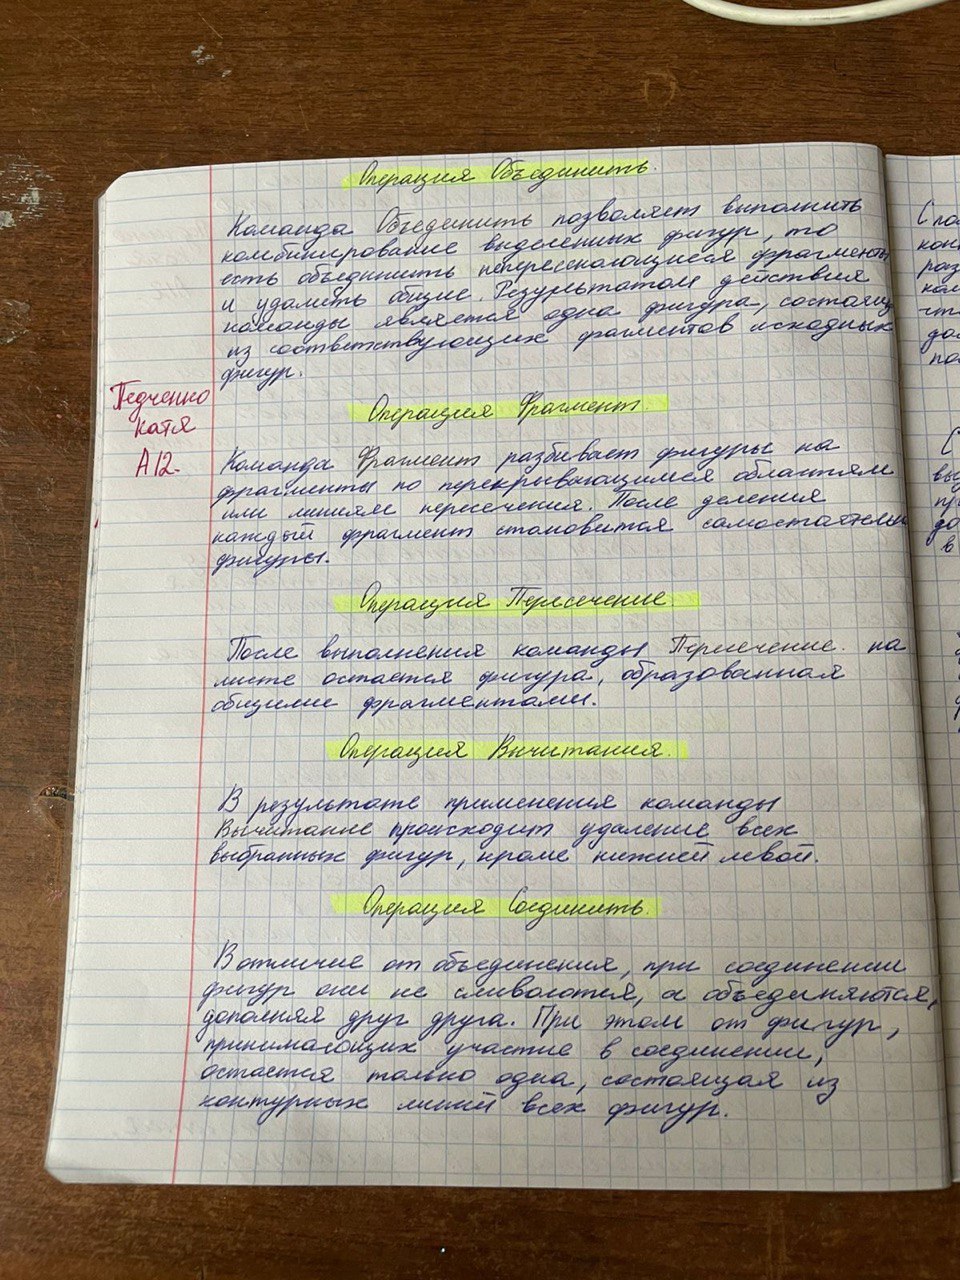 Операция Объединить.
Команда Объединить позволяет выполнить
комбинирование выделенных фигур, то
есть объединить непересекающиеся фрагменты
и удалить общие. Результатом действия
команды является одна фигура, состоящ
из соответствующих фрагментов исходных
фигур.
Педченко
Катя
А12.
Операция Фрагмент.
Команда Фрагмент разбивает фигуры на
фрагменты по перекрывающимся областям
или линиям пересечения. После деления
каждый фрагмент становится
фигуры.
Операция Пересечение.
После выполнения команды Пересечение. на
листе остается фигура, образованная
общими фрагментами.
Операция Вычитания.
В результате применения команды
Вычитание происходит удаление всех
выбранных фигур, кроме нижней левой.
Операция Соединить.
В отличие от объединения, при соединении
фигур они не сливаются, а объединяются,
дополняя друг друга. При этом от фигур,
принимающих участие в соединении,
остается только одна, состоящая из
контурных линий всех фигур.